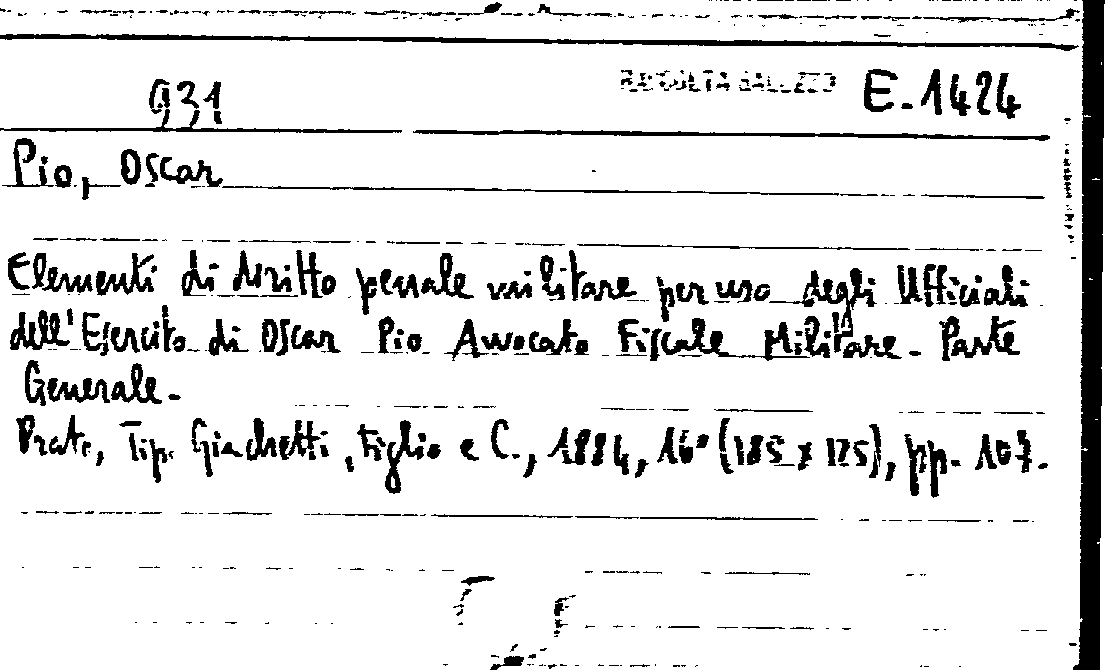 931 RACCOLTA SALUZZO E.1424
Pio, Oscar
Elementi di diritto penale militare per uso degli Ufficiali
dell'Esercito di Oscar Pio Avvocato Fiscale Militare - Parte
Generale -
Prato, Tip. Giachetti, Figlio e C., 1884, 16° (185 x 125), pp. 107.